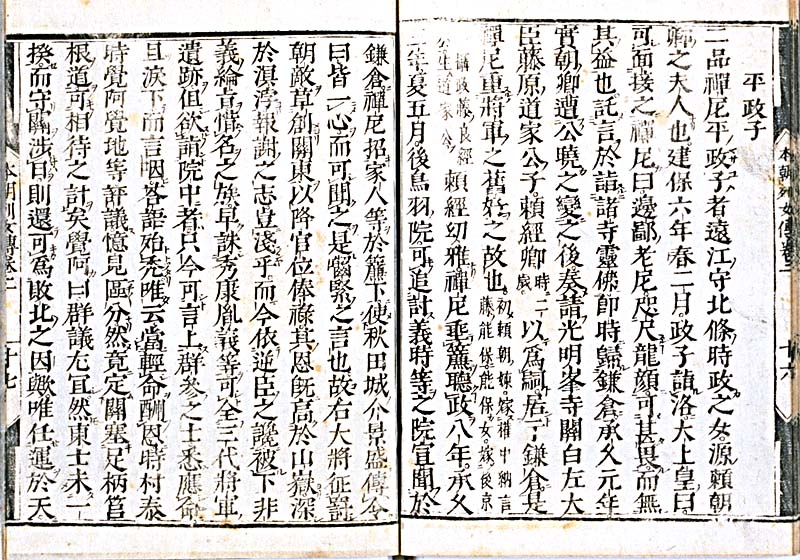 本朝列女傳卷二 十六
平政子
二品禪尼平政子者遠江守北條時政之女源賴朝
卿之夫人也建保六年春二月政子詣洛大上皇曰
可面接之禪尼曰邊鄙老尼咫尺龍顏可甚畏而無
其益也託言於詣諸寺靈佛卽時歸鎌倉承久元年
實朝卿遭公曉之變之後奏請光明峯寺關白左大
臣藤原道家公子賴經卿時二歲以爲嗣居于鎌倉是
禪尼重將軍之舊好之故也初賴朝妹嫁權中納言藤能保能保女嫁後京
攝政藤良經公生道家公賴經幼雅禪尼垂簾聽政八年承久
三年夏五月後鳥羽院可追討義時等之院宣聞於
鎌倉禪尼招家人等於簾下使秋田城介景盛傳令
曰皆一心而可聞之是囑緊之言也故右大將征罸
朝敵草創關東以降官位俸祿其恩旣高於山嶽深
於溟渟報謝之志豈淺乎而今依逆臣之讒被下非
義綸旨惜名之族早誅秀康胤義等可全三代將軍
遺跡但欲詣院中者只今可言上群參之士悉應命
且淚下而言咽吝語殆禿唯云當輕命酬恩時村泰
時覺阿覺地等評議憶見區分然竟定關塞足柄筥
根道可相待之計矣覺阿曰群議尤宜然東士未一
揆而守關涉日則還可爲敗北之因歟唯任運於天
本朝列女傳卷二 十七